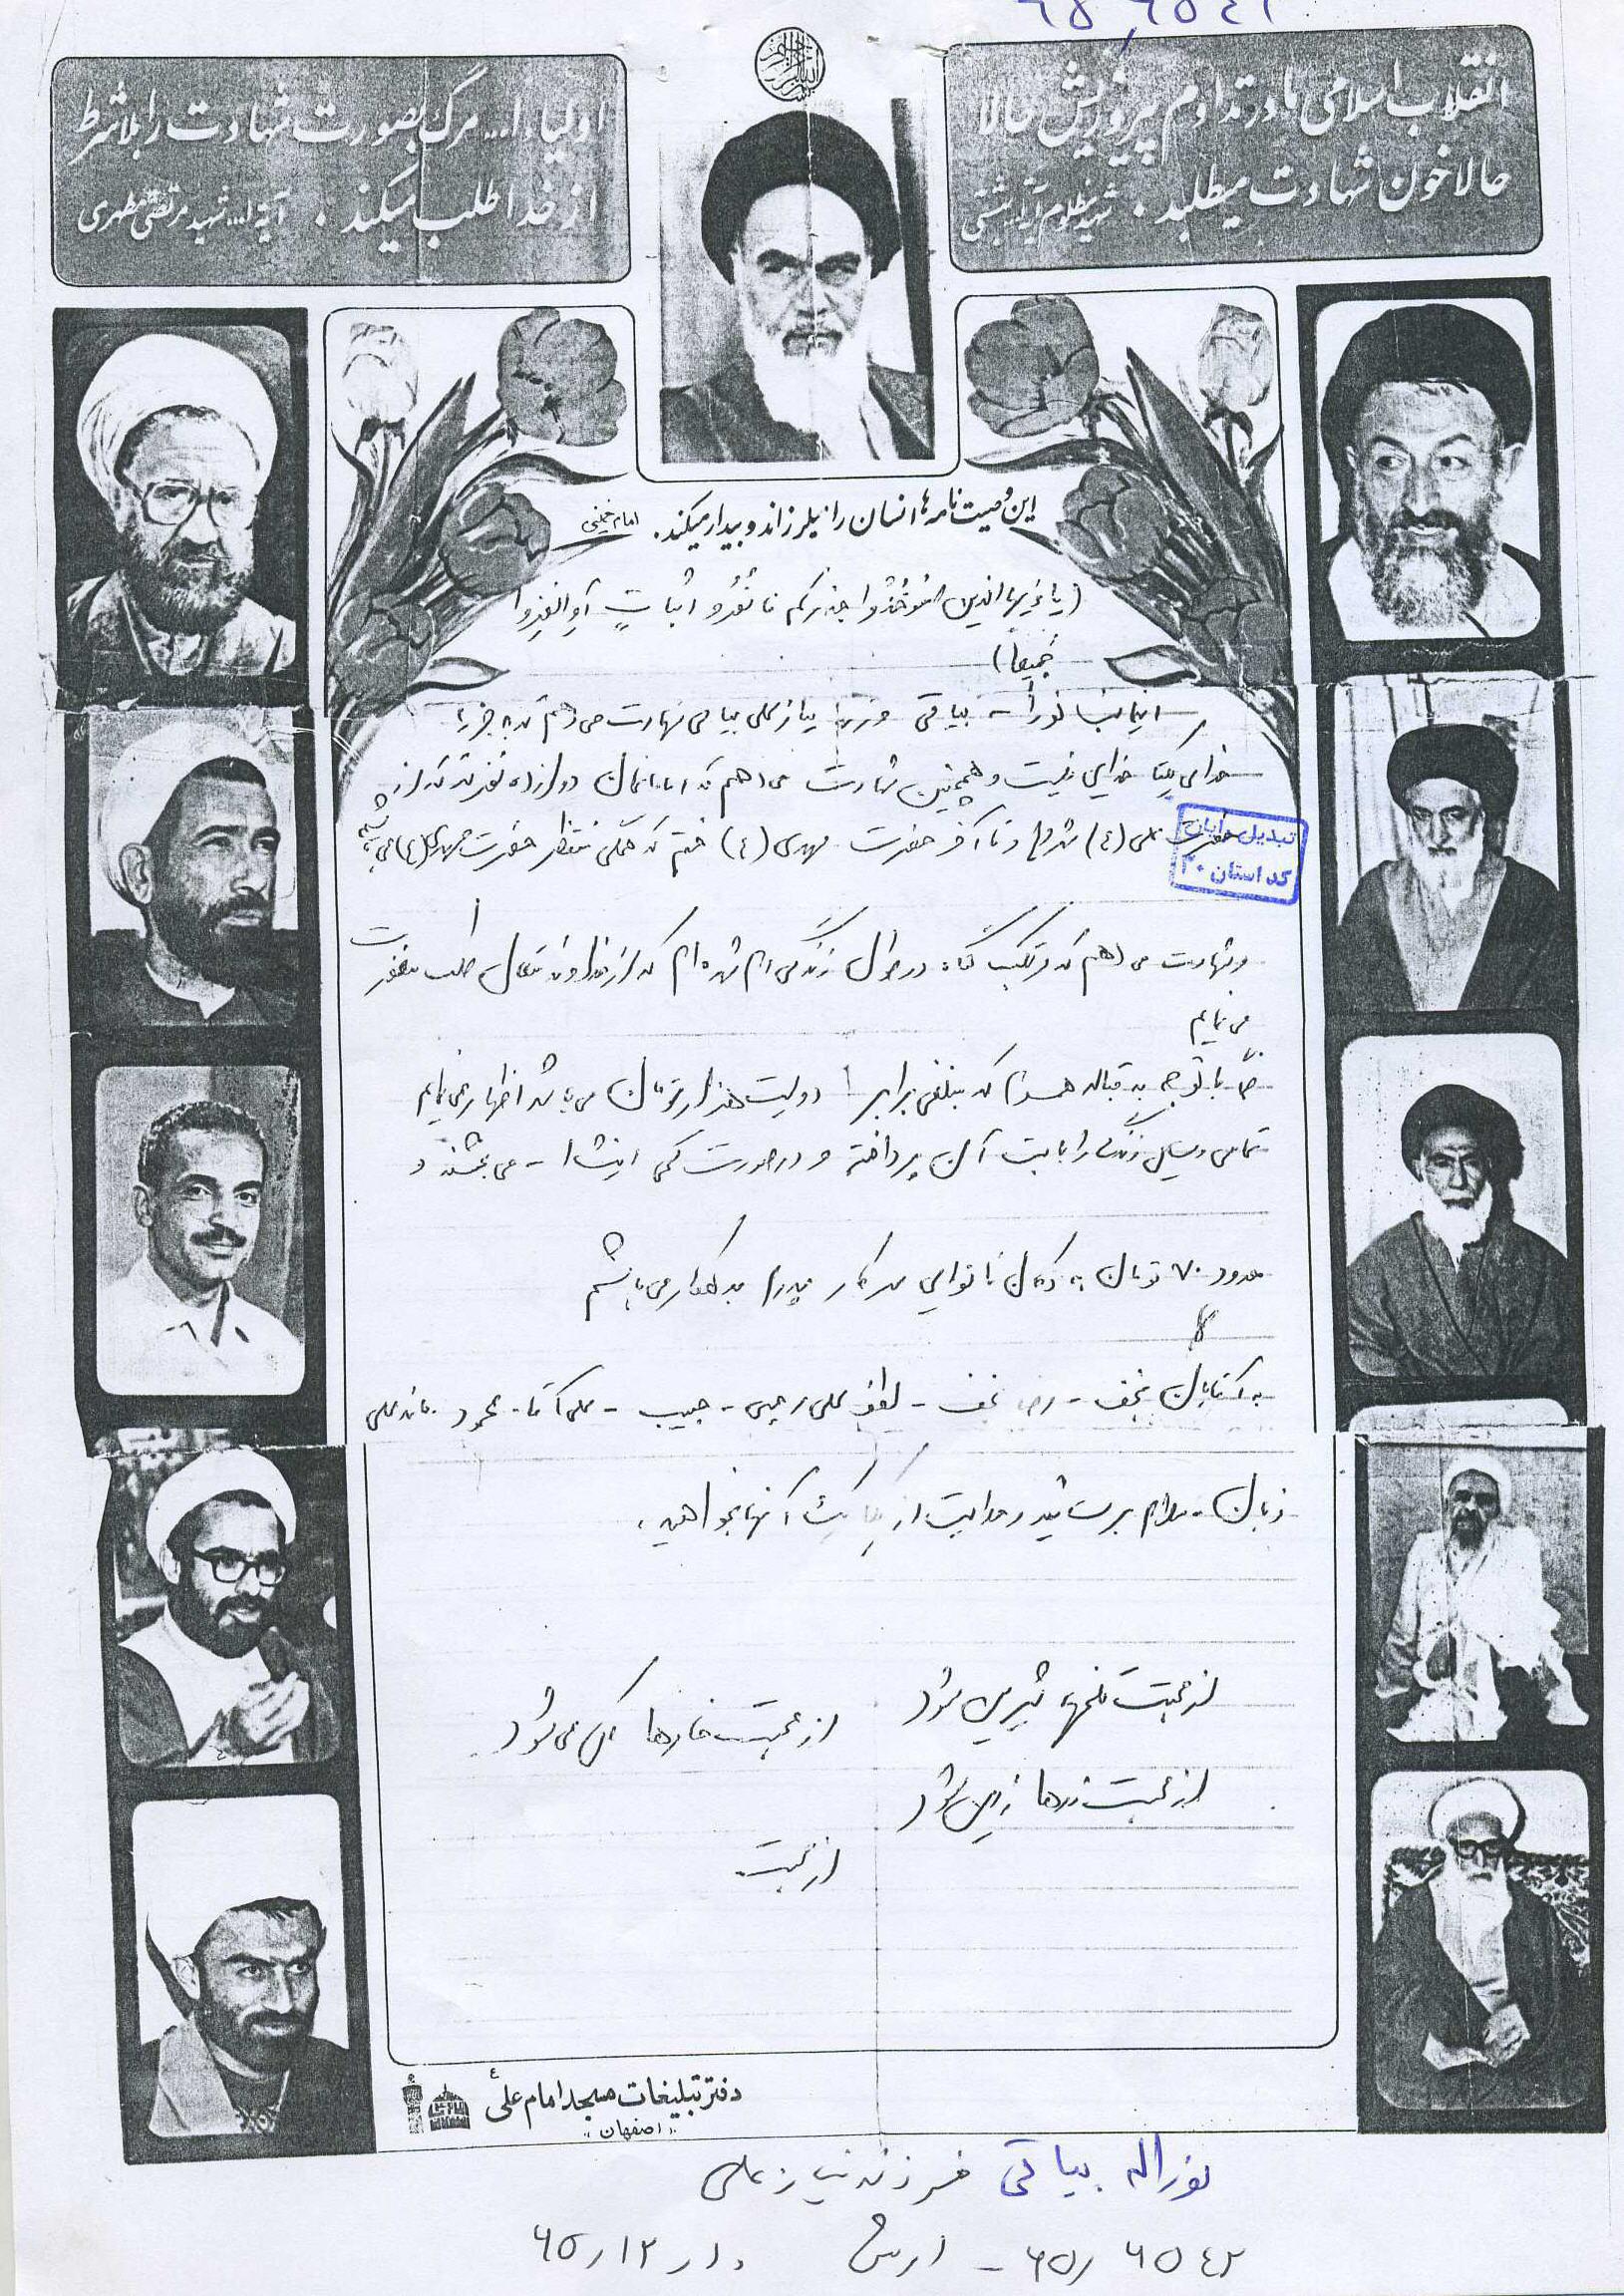 ۶۵,۶۵۴۲
انقلاب اسلامی ما در تداوم پیروزیش حالا
حالا خون شهادت میطلبد. شهید مظلوم آیة... بهشتی
اولیاء ا... مرگ بصورت شهادت را بلاشرط
از خدا طلب میکند. آیة ا... شهید مرتضی مطهری
این وصیت نامه ها انسان را میلرزاند و بیدار میکند. امام خمینی
(یا ایها الذین امنو خذوا حذرکم فانفرو اثباتٍ اَوِ انفروا
جَمیعاً)
اینجانب نورا... بیاتی فرزند نیازعلی بیاتی شهادت می دهم که به جز
خدای یکتا خدایی نیست و همچنین شهادت می دهم که امامانمان دوازده نفرند که از
حضرت علی (ع) شروع و تا آخر حضرت مهدی (ع) ختم که همگی منتظر حضرت مهدی (ع) می باشیم
تبدیل رایان
کد استان ۲۰
و شهادت می دهم که مرتکب گناه در طول زندگی ام شده ام که از خداوند متعال طلب مغفرت
می نمایم
ضمناً با توجه به قباله همسرم که مبلغی برابر با دویست هزار تومان می باشد اظهار می نمایم
تمامی وسایل زندگی را بابت آن پرداخته و در صورت کمی انشاا... می بخشند و
حدود ۷۰ تومان به دکان نانوایی سرکار پدرم بدهکار می باشم
به آقایان نجف - رضا نجف - لطف علی رجبی - حبیب - علی آقا - محمود
زبان - سلام برسانید و حلالیت از یکایک آنها بخواهید.
از محبت تلخها شیرین شود
از محبت خارها گل می شود
از محبت زردها زرین شود
از محبت
دفتر تبلیغات مسجد امام علی ع
"اصفهان"
نوراله بیاتی فرزند نیازعلی
۶۵,۶۵۴۲ - ارتش ۶۵,۱۲,۱۰